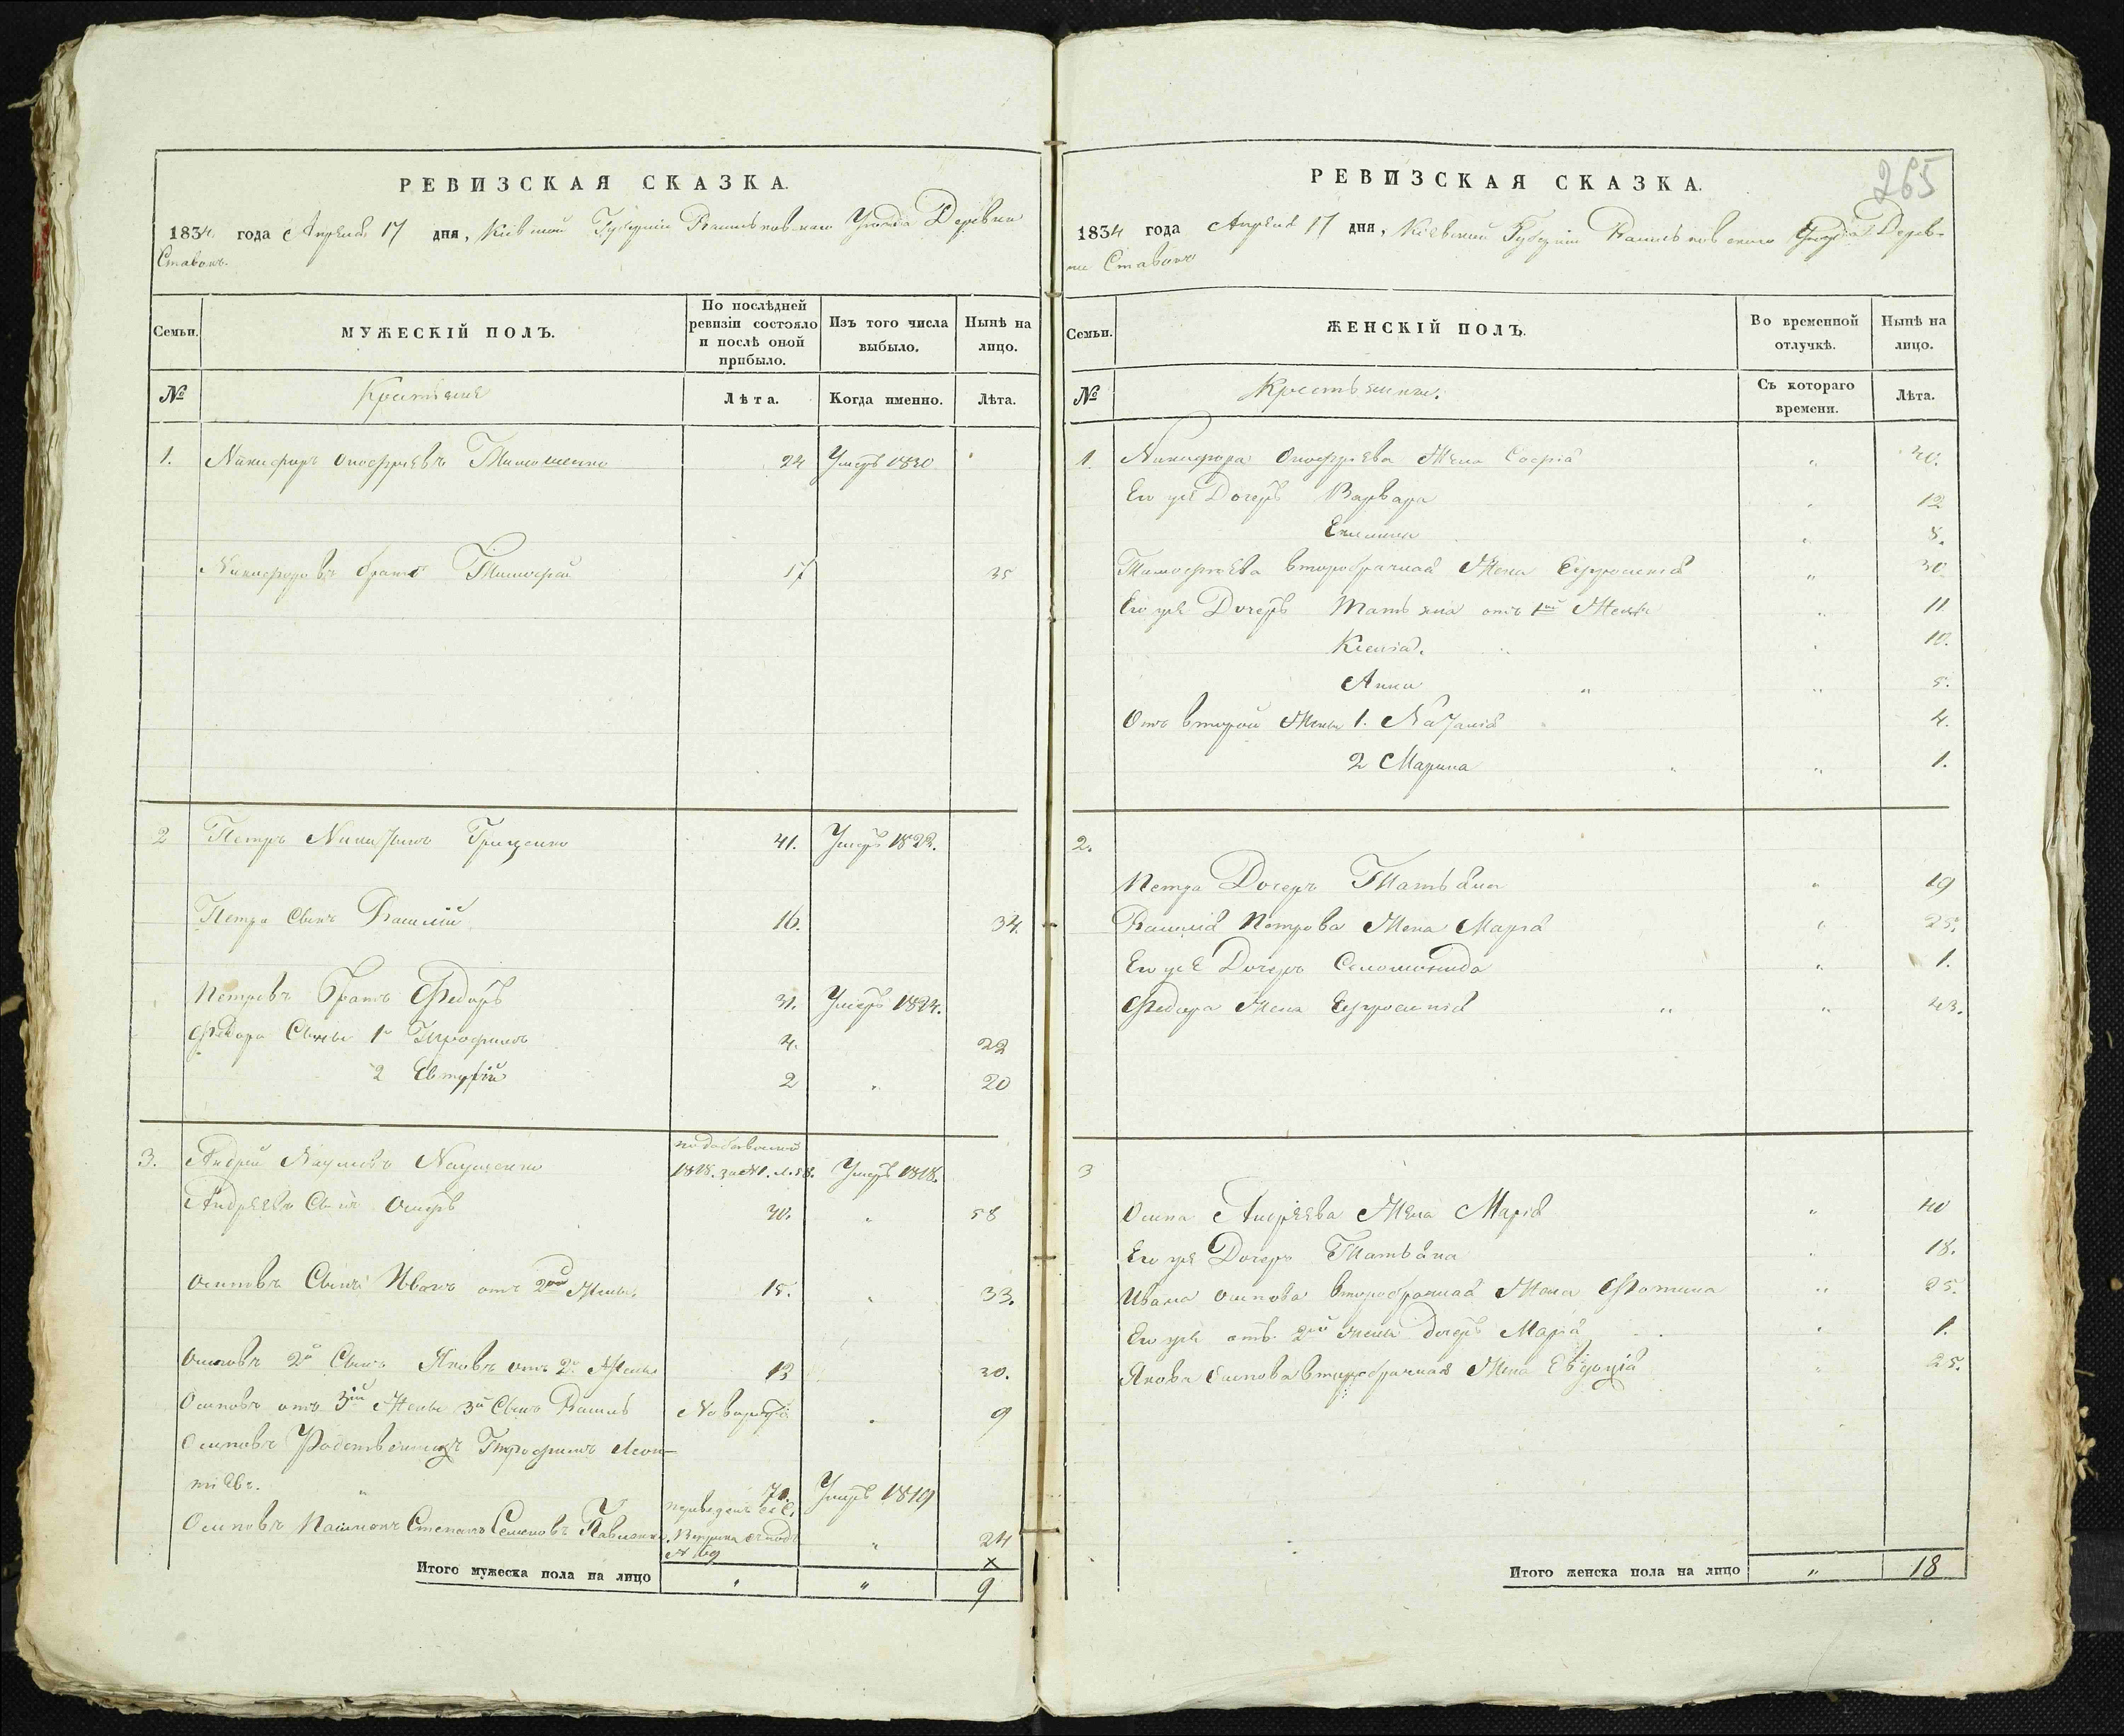 РЕВИЗСКАЯ СКАЗКА.
1834 года Апреля 17 дня, Кіевской Губерніи Васильковскаго Уѣзда Деревни
Ставокъ.
Семьи.
МУЖЕСКІЙ ПОЛЪ.
По послѣдней ревизіи состояло и послѣ оной прибыло.
Изъ того числа выбыло.
Нынѣ на лицо.
№
Крестьяне
Лѣта.
Когда именно.
Лѣта.
1. Никифоръ Онофріевъ Тимошенко 24 Умеръ 1830
Никифоровъ братъ Тимофей 17 35
2 Петръ Никитинъ Гриценко 41. Умеръ 1822.
Петра Сынъ Василій 16. 34.
Петровъ Братъ Федоръ 31. Умеръ 1824.
Федора Сыны 1й Трофимъ 4. 22
2 Евтухій 2 „ 20
3. Андрей Наумовъ Науменко 1818. за № 1. Умеръ 1818.
Андреевъ Сынъ Осипъ 40. „ 58
Осиповъ Сынъ Иванъ отъ 2ой Жены 15. „ 33.
Осиповъ 2й Сынъ Яковъ отъ 2й Жены 12 30.
Осиповъ отъ 3ій Жены 3й Сынъ Василь Новорожд „ 9
Осиповъ Родственникъ Трофимъ Леон-
тіевъ. „ 70. Умеръ 1819
Осиповъ Пасынокъ Степанъ Семеновъ Павленко переведенъ изъ с. „ 24
№ 69
Итого мужеска пола на лицо „ „ 9
РЕВИЗСКАЯ СКАЗКА.
265
1834 года Апреля 17 дня, Кіевской Губерніи Васильковскаго Уѣзда Дерев-
ни Ставокъ
Семьи.
ЖЕНСКІЙ ПОЛЪ.
Во временной отлучкѣ.
Нынѣ на лицо.
№
Крестьянки.
Съ котораго времени.
Лѣта.
1. Никифора Онофріева Жена Софія „ 40.
Его же Дочерь Варвара „ 12
„ 8.
Тимофеева второбрачная Жена Ефросинія „ 30
Его же Дочерь Татьяна отъ 1ой Жены „ 11
Ксенія. „ 10.
Анна „ „ 5.
Отъ второй Жены 1. Наталія 4.
2 Марина „ „ 1.
2.
Петра Дочерь Татьяна „ 19
Василія Петрова Жена Марія „ 25.
Его же Дочерь Соломонида „ 1.
Федора Жена Ефросинія „ „ 43.
3
Осипа Андреева Жена Марія „ 40
Его же Дочерь Татьяна „ 18.
Ивана Осипова второбрачная Жена Фотина „ 25.
Его же отъ 2ой жены дочерь Марія „ 1.
Якова Осипова второбрачная Жена Евдокія „ 25.
Итого женска пола на лицо „ 18